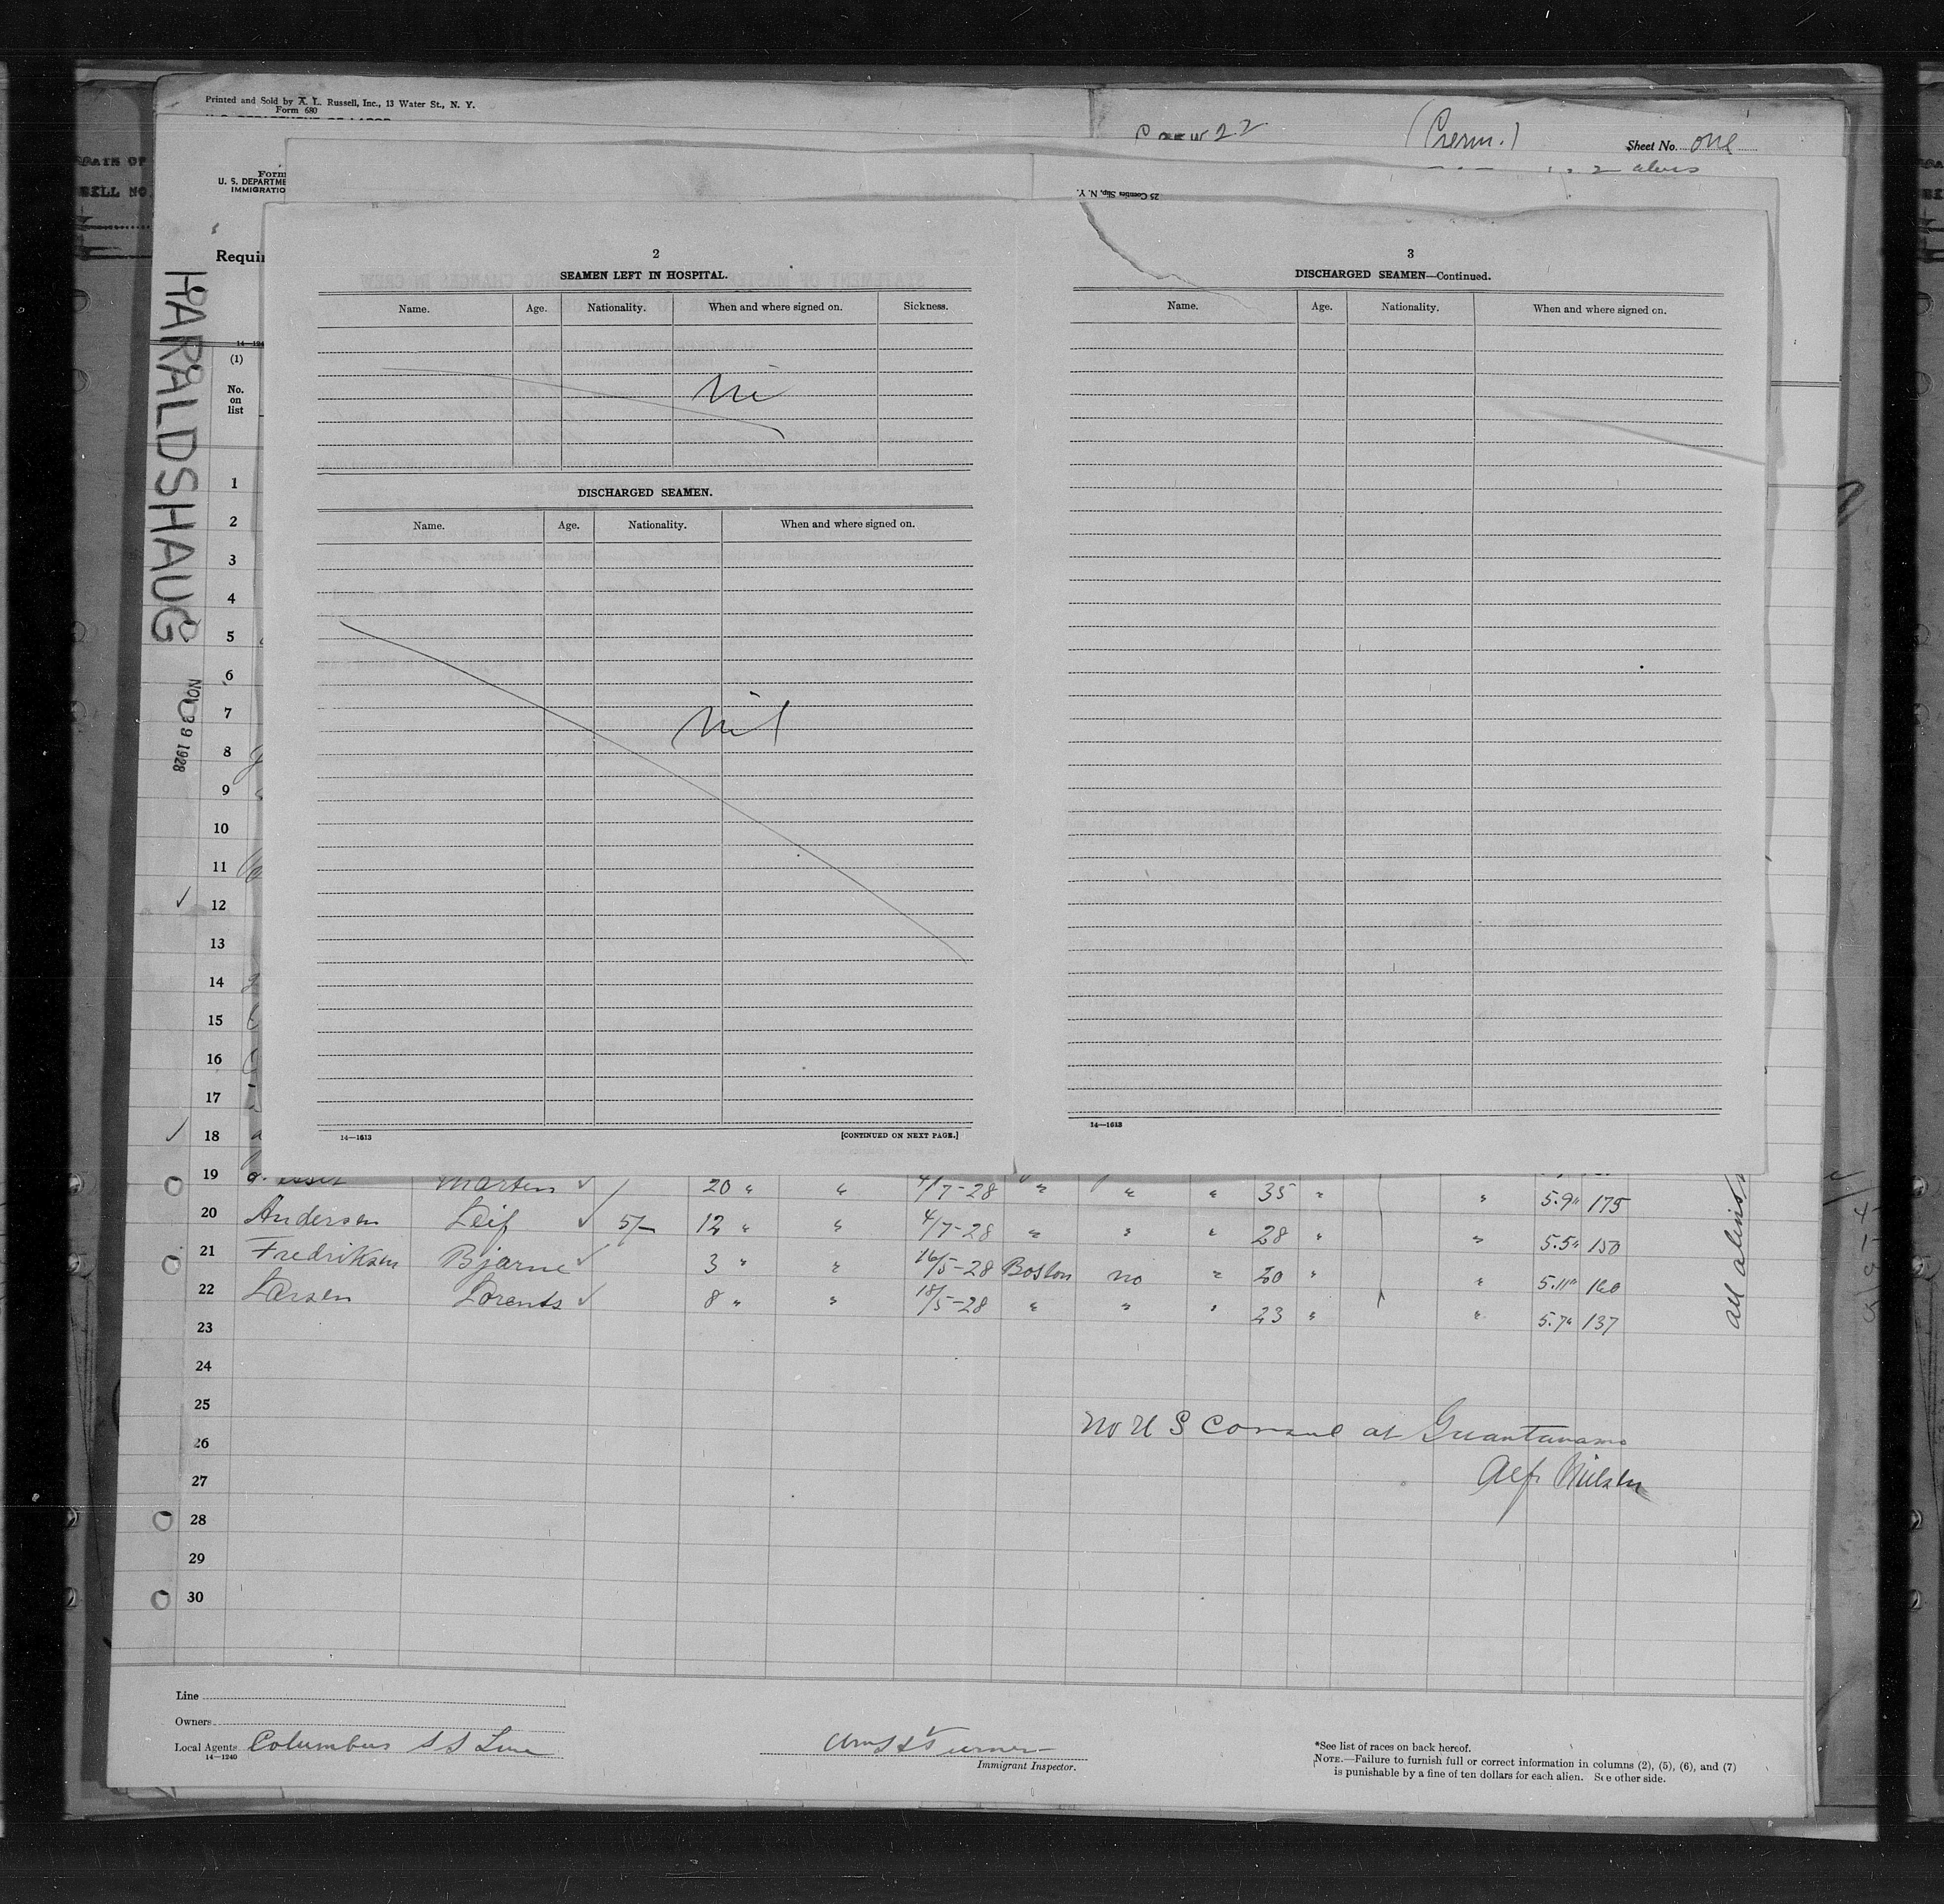 Printed and Sold by A. L. Russell, Inc., 13 Water St., N. Y.
Form 680
Crew 22
(Crew.)
Sheet No. one
2
Form
U. S. DEPARTME
IMMIGRATIO
25 Coenties Slip, N. Y.
Requir
HARALDSHAUG
NOV 9 1928
(1)
No.
on
list
2
SEAMEN LEFT IN HOSPITAL.
Name. Age. Nationality. When and where signed on. Sickness.
Nil
DISCHARGED SEAMEN.
Name. Age. Nationality. When and where signed on.
nil
14—1613
[CONTINUED ON NEXT PAGE.]
3
DISCHARGED SEAMEN—Continued.
Name. Age. Nationality. When and where signed on.
14—1613
1
2
3
4
5
6
7
8
9
10
11
✓ 12
13
14
15
16
17
✓ 18
19 Marten ✓ 20 " " 4/7-28 " " " 35 " " 5.9" 175
20 Andersen Leif ✓ 5/- 12 " " 4/7-28 " " " 28 " " 5.5" 150
21 Fredriksen Bjarne ✓ 3 " " 16/5-28 Boston no " 20 " " 5.11" 160
22 Larsen Lorents ✓ 8 " " 18/5-28 " " " 23 " " 5.7" 137
23
24
25
26
27
28
29
30
all
No U S Consul at Guantanamo
Alf. Nielsen
Line
Owners
Local Agents Columbus S S Line
14—1240
Immigrant Inspector.
*See list of races on back hereof.
NOTE.—Failure to furnish full or correct information in columns (2), (5), (6), and (7)
is punishable by a fine of ten dollars for each alien. See other side.